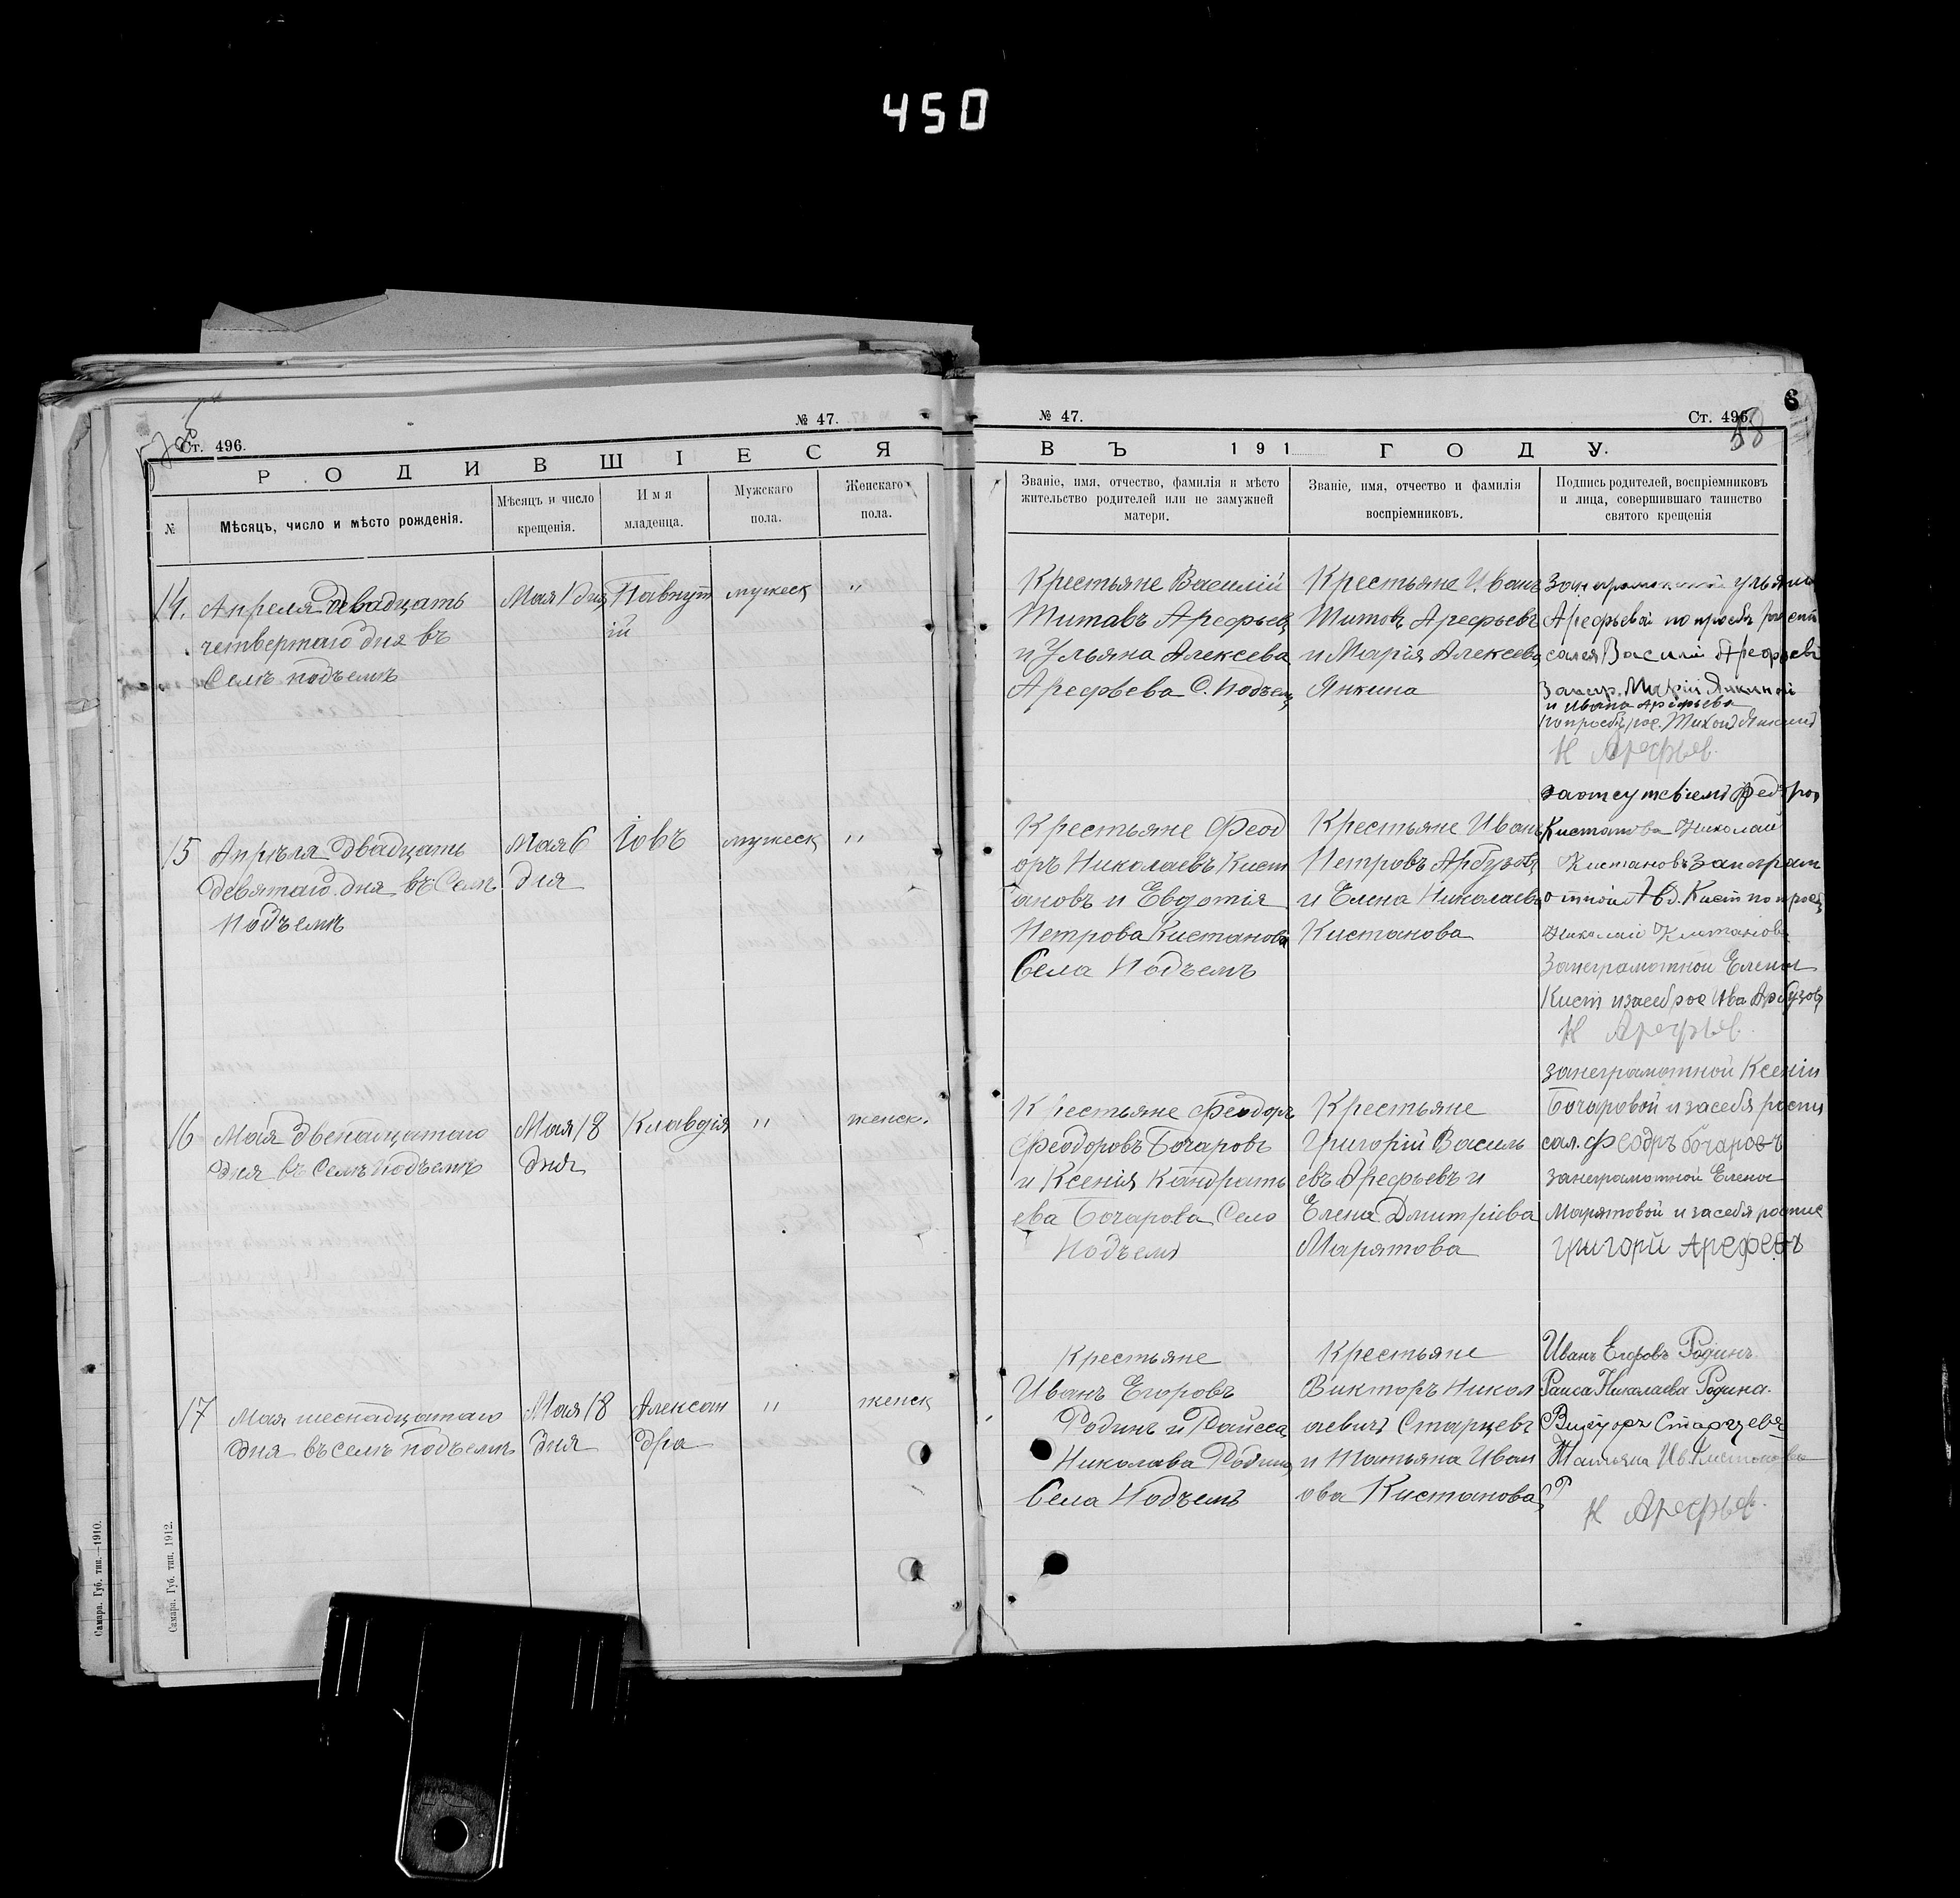 450
Ст. 496.
№ 47.
РОДИВШІЕСЯ
№
Мѣсяцъ, число и мѣсто рожденія.
Мѣсяцъ и число крещенія.
Имя младенца.
Мужскаго пола.
Женскаго пола.
14. Апреля двадцать Мая 1 дня Павнут мужеск "
четвертаго дня въ ій
Селѣ подъемѣ
15 Апрѣля двадцать Мая 6 Іовъ мужеск "
девятаго дня въ Селѣ дня
Подъемѣ
16 Мая двенадцатаго Мая 18 Клавдія " женск.
дня въ Селѣ Подъемѣ дня
17 Мая шеснадцатаго Мая 18 Алексан " женск
дня въ селѣ подъемѣ дня дра
Самара. Губ. тип.—1910.
Самара. Губ. тип. 1912.
№ 47.
Ст. 496.
6
58
ВЪ 191 ГОДУ.
Званіе, имя, отчество, фамилія и мѣсто
жительство родителей или не замужней
матери.
Званіе, имя, отчество и фамилія
воспріемниковъ.
Подпись родителей, воспріемниковъ
и лица, совершившаго таинство
святого крещенія
Крестьяне Василій
Титавъ Арефьев
и Ульяна Алексева
Арефьева С. Подъем
Крестьяне Иванъ
Титовъ Арефьевъ
и Марія Алексева
Янкина
Арефьевой по просьбе
Василий Арефьевъ
Марии Янкиной
и Ивана Арефьева
Н Арефьев.
Крестьяне Феод
оръ Николаевъ Кист
ановъ и Евдотія
Петрова Кистанова
Села Подъемъ
Крестьяне Иванъ
Петровъ Арбузовъ
и Елена Николаева
Кистанова
Кистанова Николай
Кистановъ занеграм
отной Авд. Кист по прос
Николай Кистановъ
Занеграмотной Елены
Кист изасеб рос Ива Арбузов
Н Арефьев.
Крестьяне Феодоръ
Феодоровъ Бочаровъ
и Ксенія Кандрать
ева Бочарова Село
Подъемъ
Крестьяне
Григорій Василь
евъ Арефьевъ и
Елена Дмитріева
Марятова
занеграмотной Ксеніи
Бочаровой и засебя роспи
сал. Феодръ бочаровъ
занеграмотной Елены
Марятовой и засебя роспис
григорй Арефевъ
Крестьяне
Иванъ Егоровъ
Родинъ и Раиса
Николава Родина
Села Подъемъ
Крестьяне
Викторъ Никол
аевичъ Старцевъ
и Татьяна Иван
ова Кистанова
Иванъ Егоровъ Родинъ.
Раиса Николаева Родина.
Викторъ Старцевъ
Татьяна Ив. Кистонова
Н Арефьев.